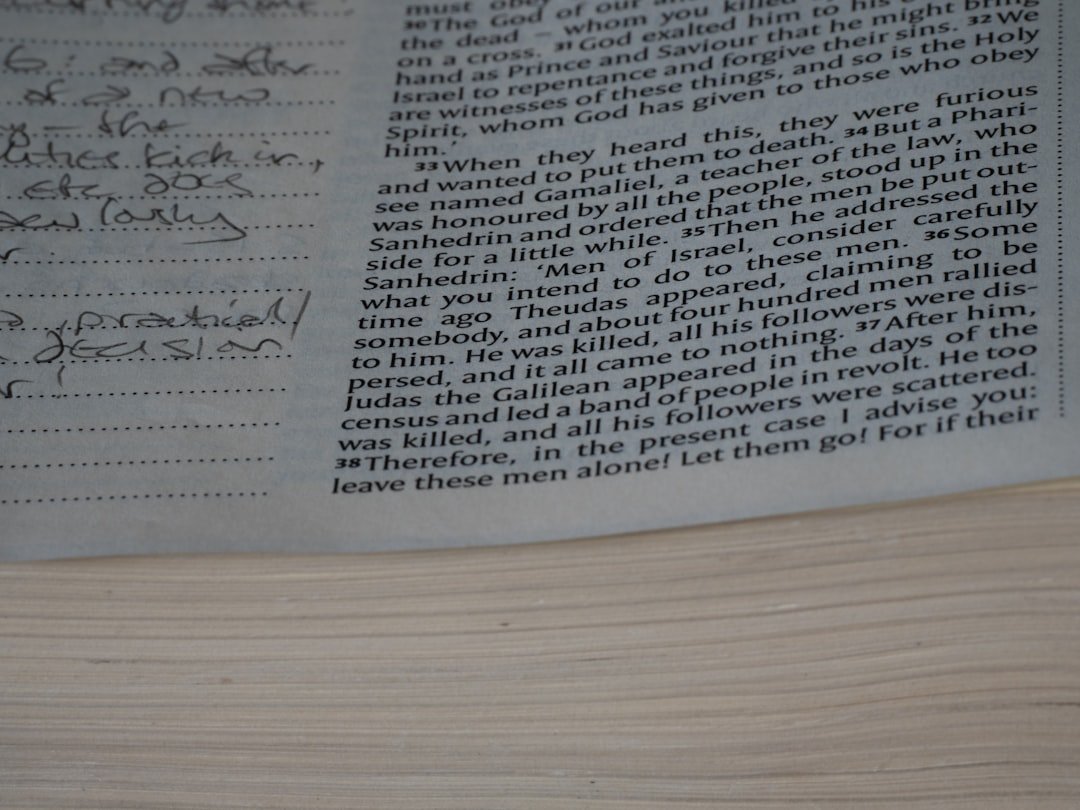 6: and after
of a new
– the
kick in,
etc, does
practical/
decision
must obey
30 The God of our
the dead – whom you killed
on a cross. 31 God exalted him to his
hand as Prince and Saviour that he might bring
Israel to repentance and forgive their sins. 32 We
are witnesses of these things, and so is the Holy
Spirit, whom God has given to those who obey
him.'
33 When they heard this, they were furious
and wanted to put them to death. 34 But a Phari-
see named Gamaliel, a teacher of the law, who
was honoured by all the people, stood up in the
Sanhedrin and ordered that the men be put out-
side for a little while. 35 Then he addressed the
Sanhedrin: 'Men of Israel, consider carefully
what you intend to do to these men. 36 Some
time ago Theudas appeared, claiming to be
somebody, and about four hundred men rallied
to him. He was killed, all his followers were dis-
persed, and it all came to nothing. 37 After him,
Judas the Galilean appeared in the days of the
census and led a band of people in revolt. He too
was killed, and all his followers were scattered.
38 Therefore, in the present case I advise you:
leave these men alone! Let them go! For if their